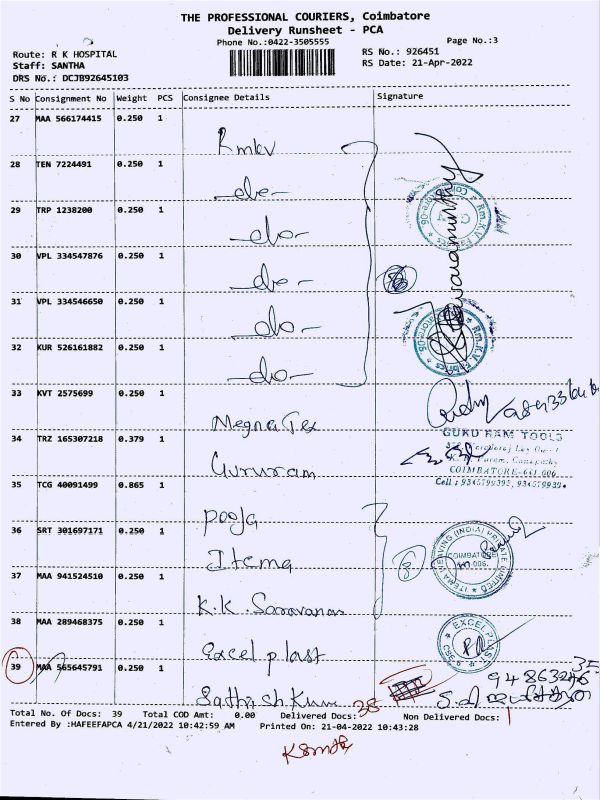 THE PROFESSIONAL COURIERS, Coimbatore
Delivery Runsheet - PCA
Phone No.:0422-3505555
Page No.:3
Route: R K HOSPITAL
RS No.: 926451
Staff: SANTHA
RS Date: 21-Apr-2022
DRS No.: DCJB92645103
S No Consignment No Weight PCS Consignee Details Signature
27 MAA 566174415 0.250 1
Rmkv
28 TEN 7224491 0.250 1
-do-
29 TRP 1238200 0.250 1
-do-
30 VPL 334547876 0.250 1
-do-
31 VPL 334546650 0.250 1
-do-
32 KUR 526161882 0.250 1
-do-
33 KVT 2575699 0.250 1
Megna Tex
34 TRZ 165307218 0.379 1
GURU RAM TOOLS
Gururam
COIMBATORE-641 006.
35 TCG 40091499 0.865 1
Pooja
36 SRT 301697171 0.250 1
ITEMA WEAVING (INDIA) PRIVATE LIMITED
COIMBATORE
Itema
37 MAA 941524510 0.250 1
K.K. Saravanan
38 MAA 289468375 0.250 1
EXCEL PLAST
Excel plast
39 MAA 565645791 0.250 1
Sathish Kum
38
Total No. Of Docs: 39 Total COD Amt: 0.00 Delivered Docs: Non Delivered Docs: 1
Entered By :HAFEEFAPCA 4/21/2022 10:42:59 AM Printed On: 21-04-2022 10:43:28